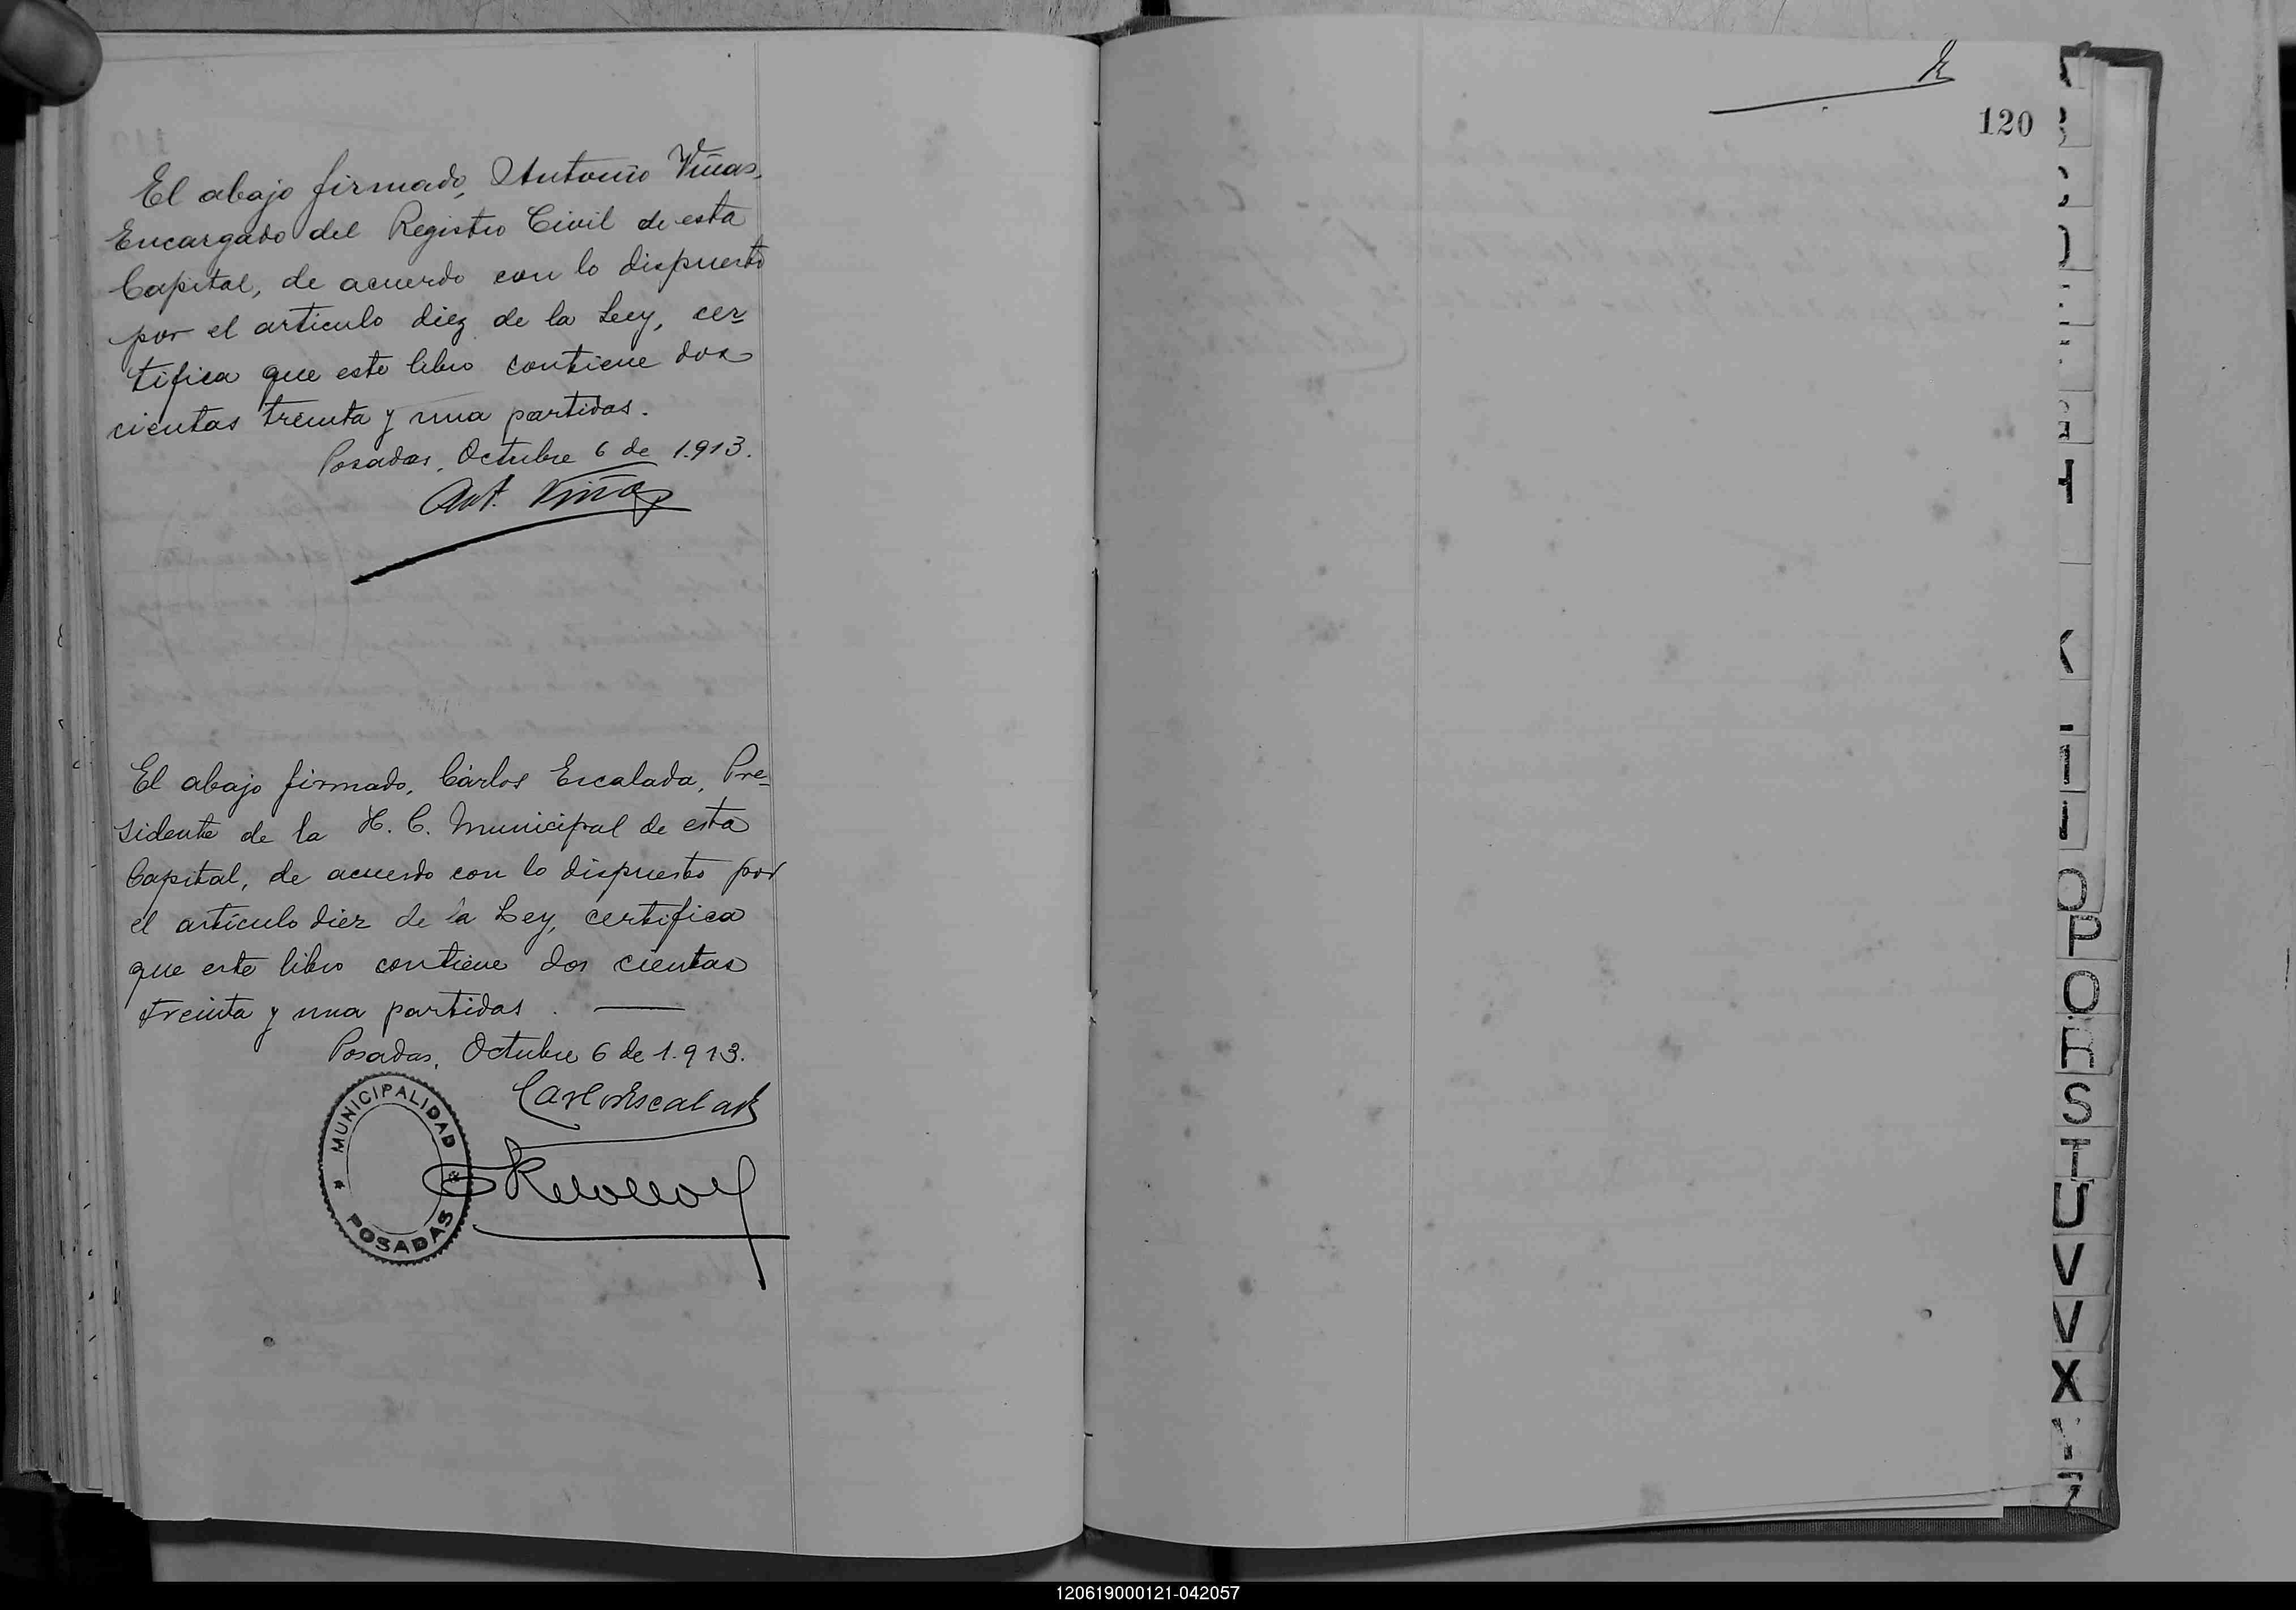 El abajo firmado, Antonio Viñas,
Encargado del Registro Civil de esta
Capital, de acuerdo con lo dispuesto
por el artículo diez de la Ley, cer-
tifica que este libro contiene dos
cientas treinta y una partidas.
Posadas, Octubre 6 de 1.913.
Ant. Viñas
El abajo firmado, Cárlos Escalada, Pre-
sidente de la H. C. Municipal de esta
Capital, de acuerdo con lo dispuesto por
el artículo diez de la Ley, certifica
que este libro contiene dos cientas
treinta y una partidas.
Posadas, Octubre 6 de 1.913.
Carlos Escalada
MUNICIPALIDAD
POSADAS
120
K
O
P
Q
R
S
T
U
V
V
X
120619000121-042057